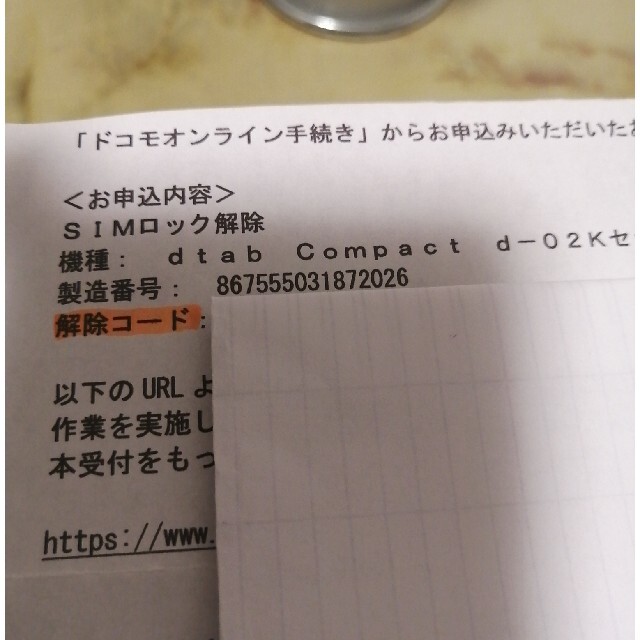 「ドコモオンライン手続き」からお申込みいただいた
＜お申込内容＞
ＳＩＭロック解除
機種：　ｄｔａｂ　Ｃｏｍｐａｃｔ　ｄ－０２Ｋセ
製造番号：　867555031872026
解除コード：
以下のURLよ
作業を実施し
本受付をもっ
https://www.